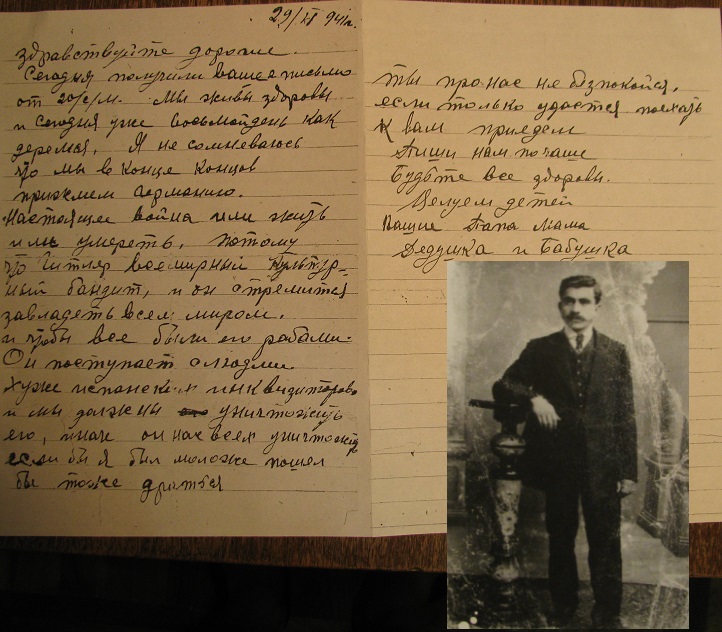 29/VI 941г.
здравствуйте дорогие.
Сегодня получили ваше письмо
от 20/с/м. Мы живы здоровы
и Сегодня уже восьмой день как
деремся, Я не сомневаюсь
что мы в конце концов
прижмем германию.
Настоящее война или жить
или умереть, потому
что Гитлер всемирный Культур-
ный бандит, и он стремится
завладеть всем миром.
и чтобы все были его рабами.
Он поступает с людми
хуже испанских инквизиторов
и мы должны уничтожить
его, иначе он нас всех уничтожить
если бы я был моложе пошел
бы тоже дратся
ты про нас не бизпокойся,
если только удастся поехать
К вам приедем
Пиши нам почаще
Будьте все здоровы.
Целуем детей
Ваши Папа Мама
Дедушка и Бабушка